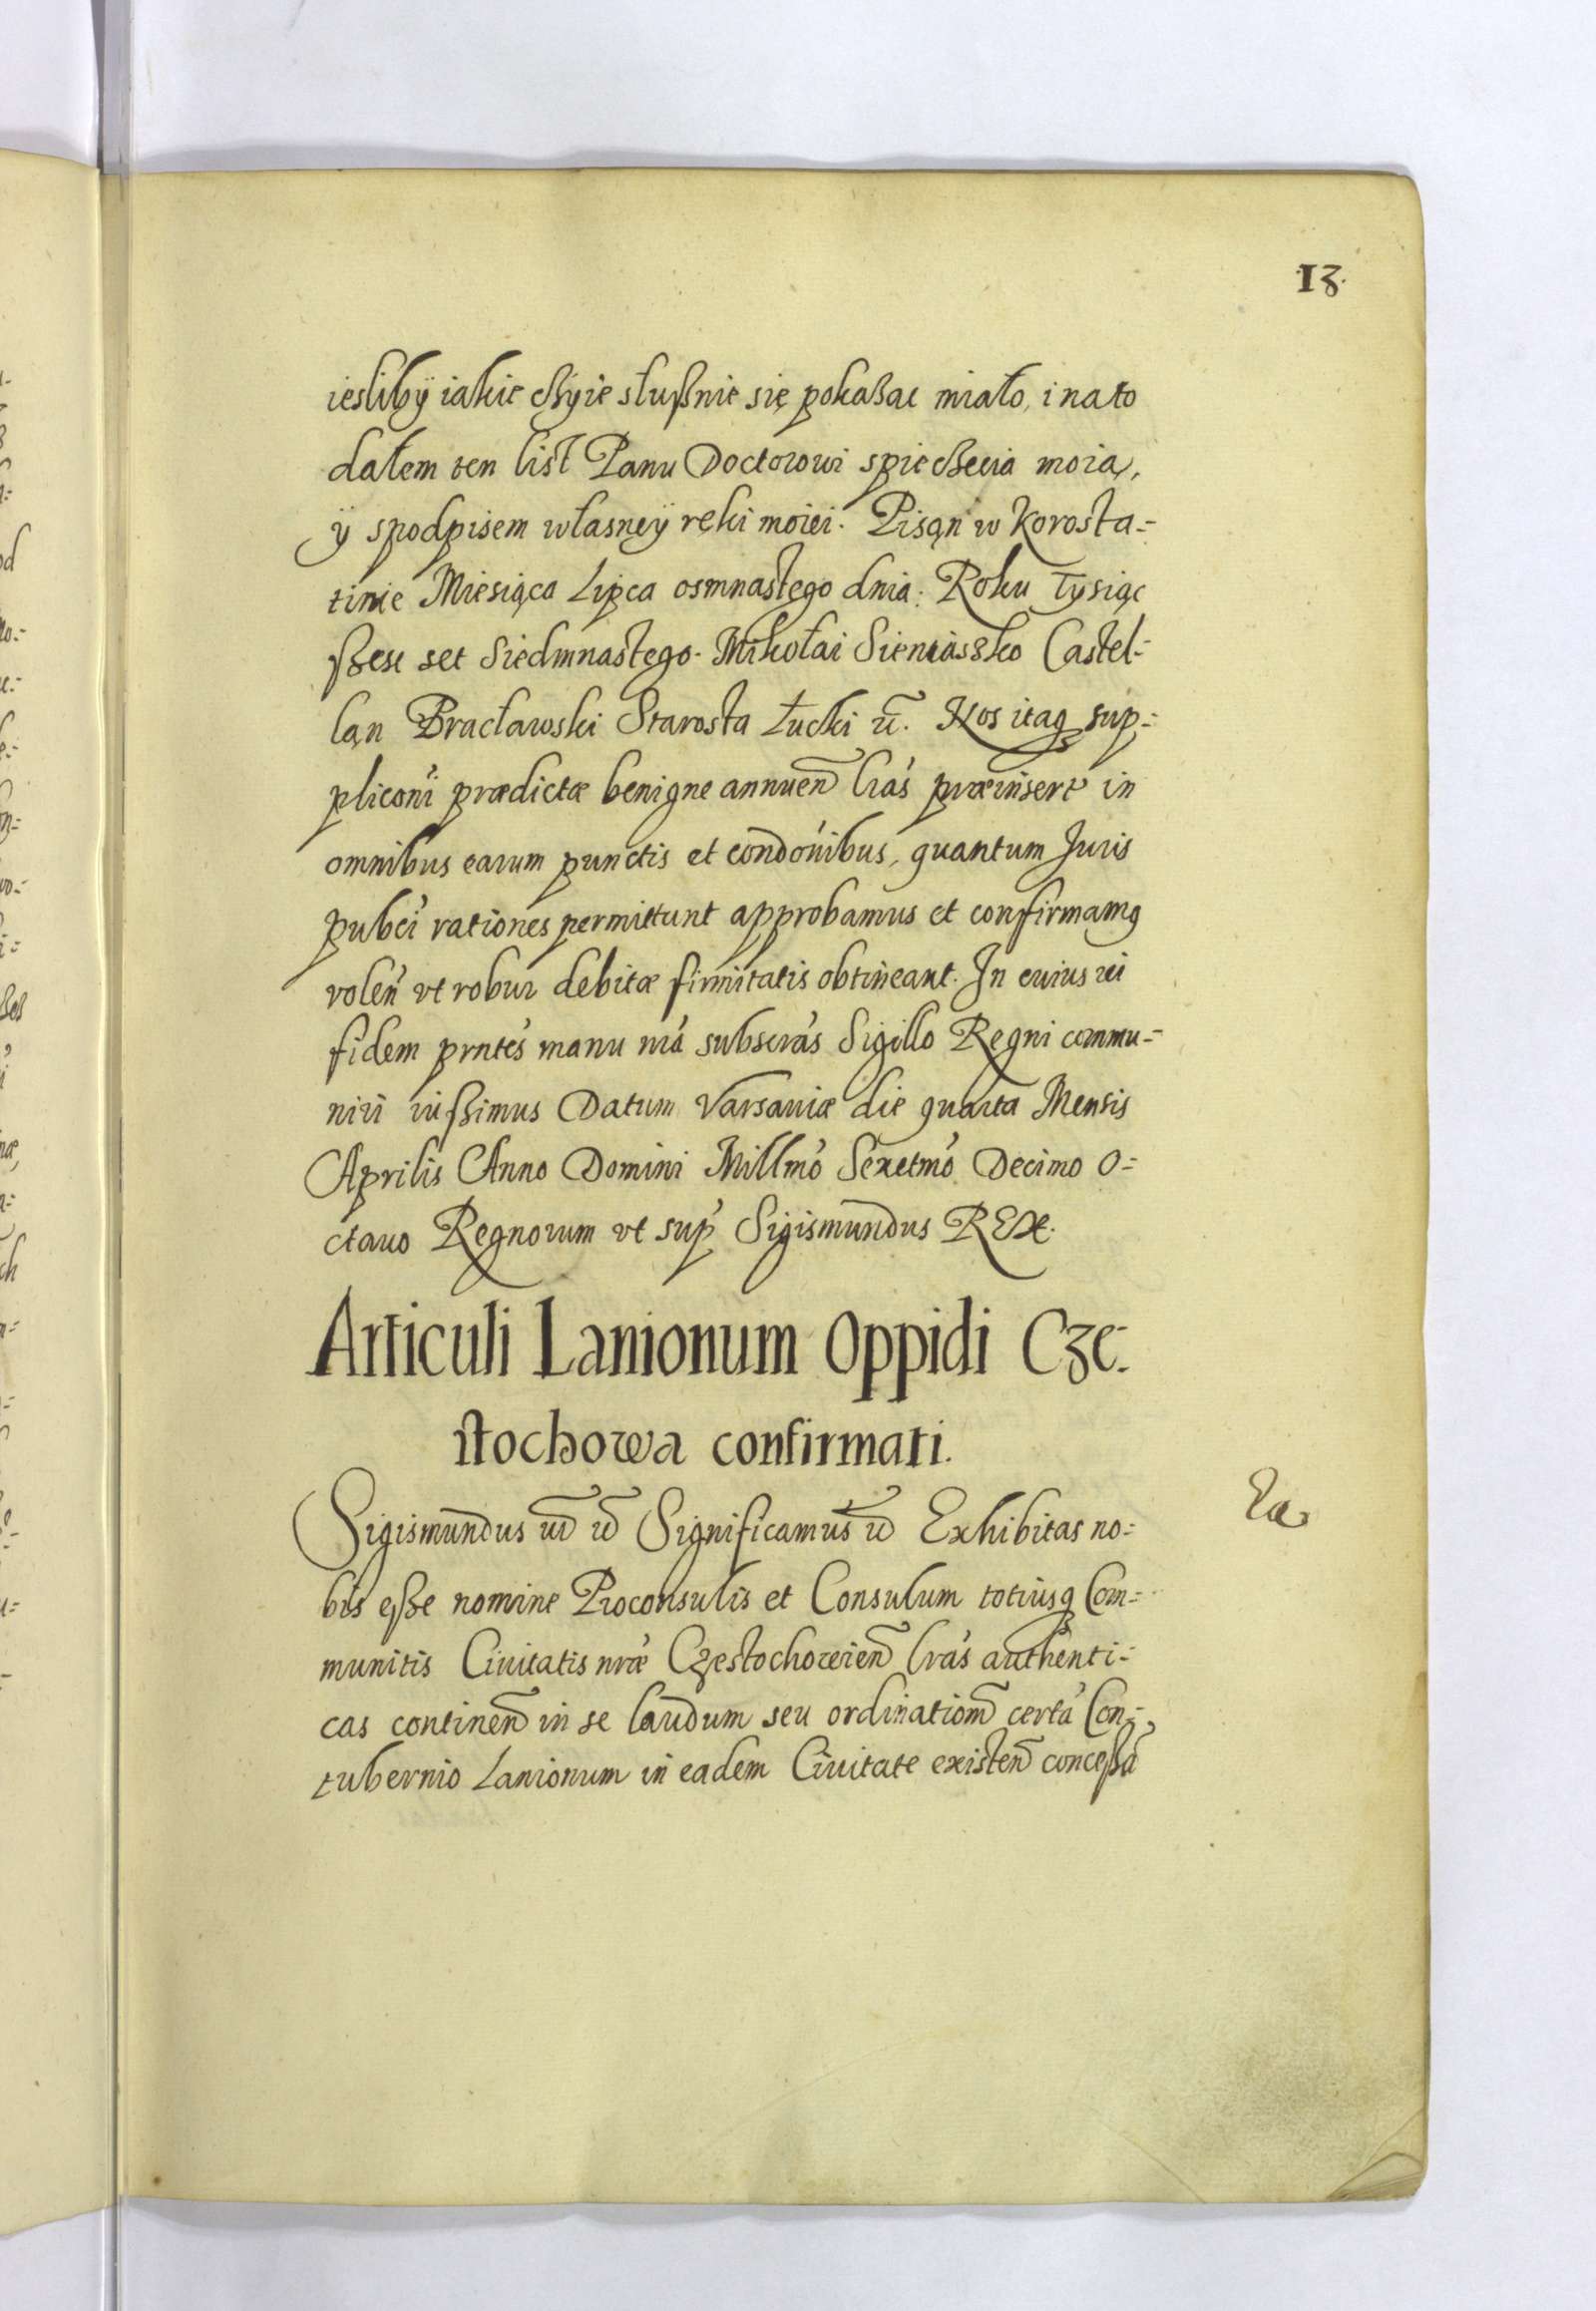 13.
iesliby iakie czyie słusznie się pokazac miało, i na to
dałem ten list Panu Doctorowi spieczecia moią,
ÿ spodpisem własneÿ ręki moiei. Pisąn w Korosta-
tinie Miesiąca Lipca osmnastego dnia: Roku Tysiąc
szesc set Siedmnastego. Mikołai Sieniawsko Castel-
lan Bracławski Starosta Łucki etc. Nos itaq sup-
pliconi prædictæ benigne annuen lras præinsert in
omnibus earum punctis et condonibus, quantum Juris
pubci rationes permittunt approbamus et confirmamq
volen vt robur debitæ firmitatis obtineant. In cuius rei
fidem prntes manu nra subscras Sigillo Regni commu-
niri iussimus Datum Varsaviæ die quarta Mensis
Aprilis Anno Domini Millmo Sexctmo Decimo O-
ctauo Regnorum vt sup Sigismundus REX.
Articuli Lanionum Oppidi Cze-
stochowa confirmati.
Sigismundus etc etc Significamus etc Exhibitas no-
bis esse nomine Proconsulis et Consulum totiusq Com-
munitis Ciuitatis nræ Czestochowien lras authenti-
cas continen in se laudum seu ordination certa Con-
tubernio Lanionum in eadem Ciuitate existen concessa